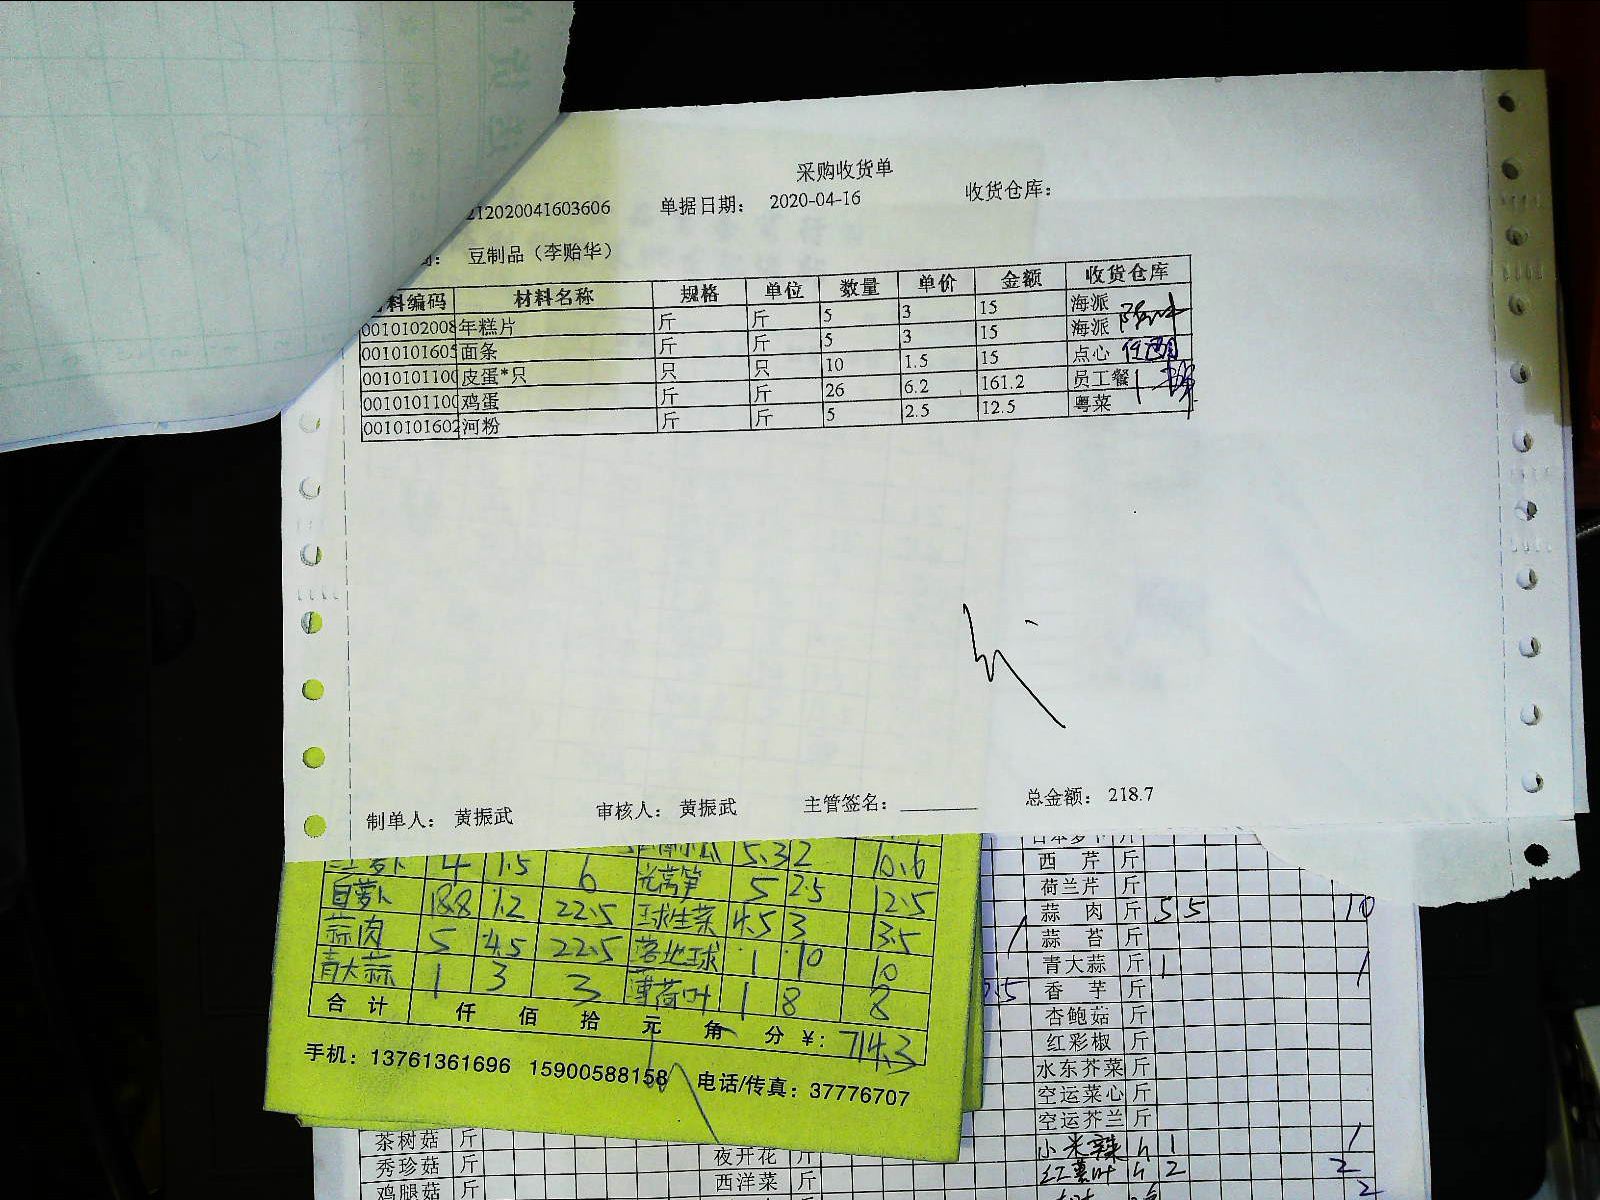 采购收货单
212020041603606 单据日期： 2020-04-16 收货仓库：
豆制品（李贻华）
料编码 材料名称 规格 单位 数量 单价 金额 收货仓库
0010102008 年糕片 斤 斤 5 3 15 海派
0010101605 面条 斤 斤 5 3 15 海派
0010101100 皮蛋*只 只 只 10 1.5 15 点心
0010101100 鸡蛋 斤 斤 26 6.2 161.2 员工餐
0010101602 河粉 斤 斤 5 2.5 12.5 粤菜
制单人： 黄振武 审核人： 黄振武 主管签名： 总金额： 218.7
4 1.5 6 5.3 2 10.6
白萝卜 18.8 1.2 22.5 光莴笋 5 2.5 12.5
蒜肉 5 4.5 22.5 球生菜 4.5 3 13.5
青大蒜 1 3 3 落地球 1 10 10
薄荷叶 1 8 8
合计 仟 佰 拾 元 角 分 ¥: 714.3
手机：13761361696 15900588158 电话/传真：37776707
西芹 斤
荷兰芹 斤
蒜肉 斤 5 5 10
蒜苔 斤
青大蒜 斤 1 1
香芋 斤
杏鲍菇 斤
红彩椒 斤
水东芥菜 斤
空运菜心 斤
空运芥兰 斤
小米辣 1 1
红薯叶 2 2
茶树菇 斤
秀珍菇 斤
鸡腿菇 斤
夜开花 斤
西洋菜 斤